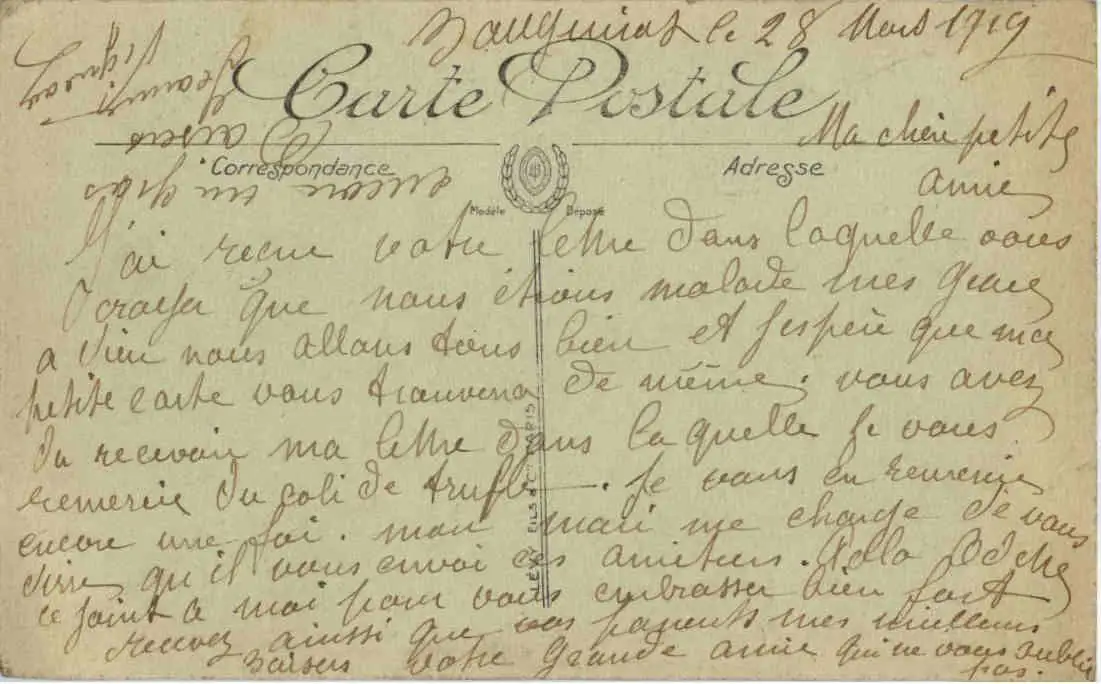 le 28 Mars 1919
Carte Postale
Ma chère petite
Correspondance
Adresse
amie
Modèle Déposé
J'ai recue votre lettre dans laquelle vous
que nous étions malade mes grace
a Dieu nous allons tous bien et j'espère que ma
petite carte vous trouvera de même. vous avez
du recevoir ma lettre dans laquelle je vous
remercie du coli de truffe. je vous en remercie
encore une foi. mon mari me charge de vous
dire qu'il vous envoi ces amitiers.
ce joint a moi pour vous embrasser bien fort
recevez ainssi que vos parents mes meilleurs
Baisers votre Grande amie qui ne vous oublie
pas.
encore un gros
Baisers
Jeanne
FILS & Cie PARIS